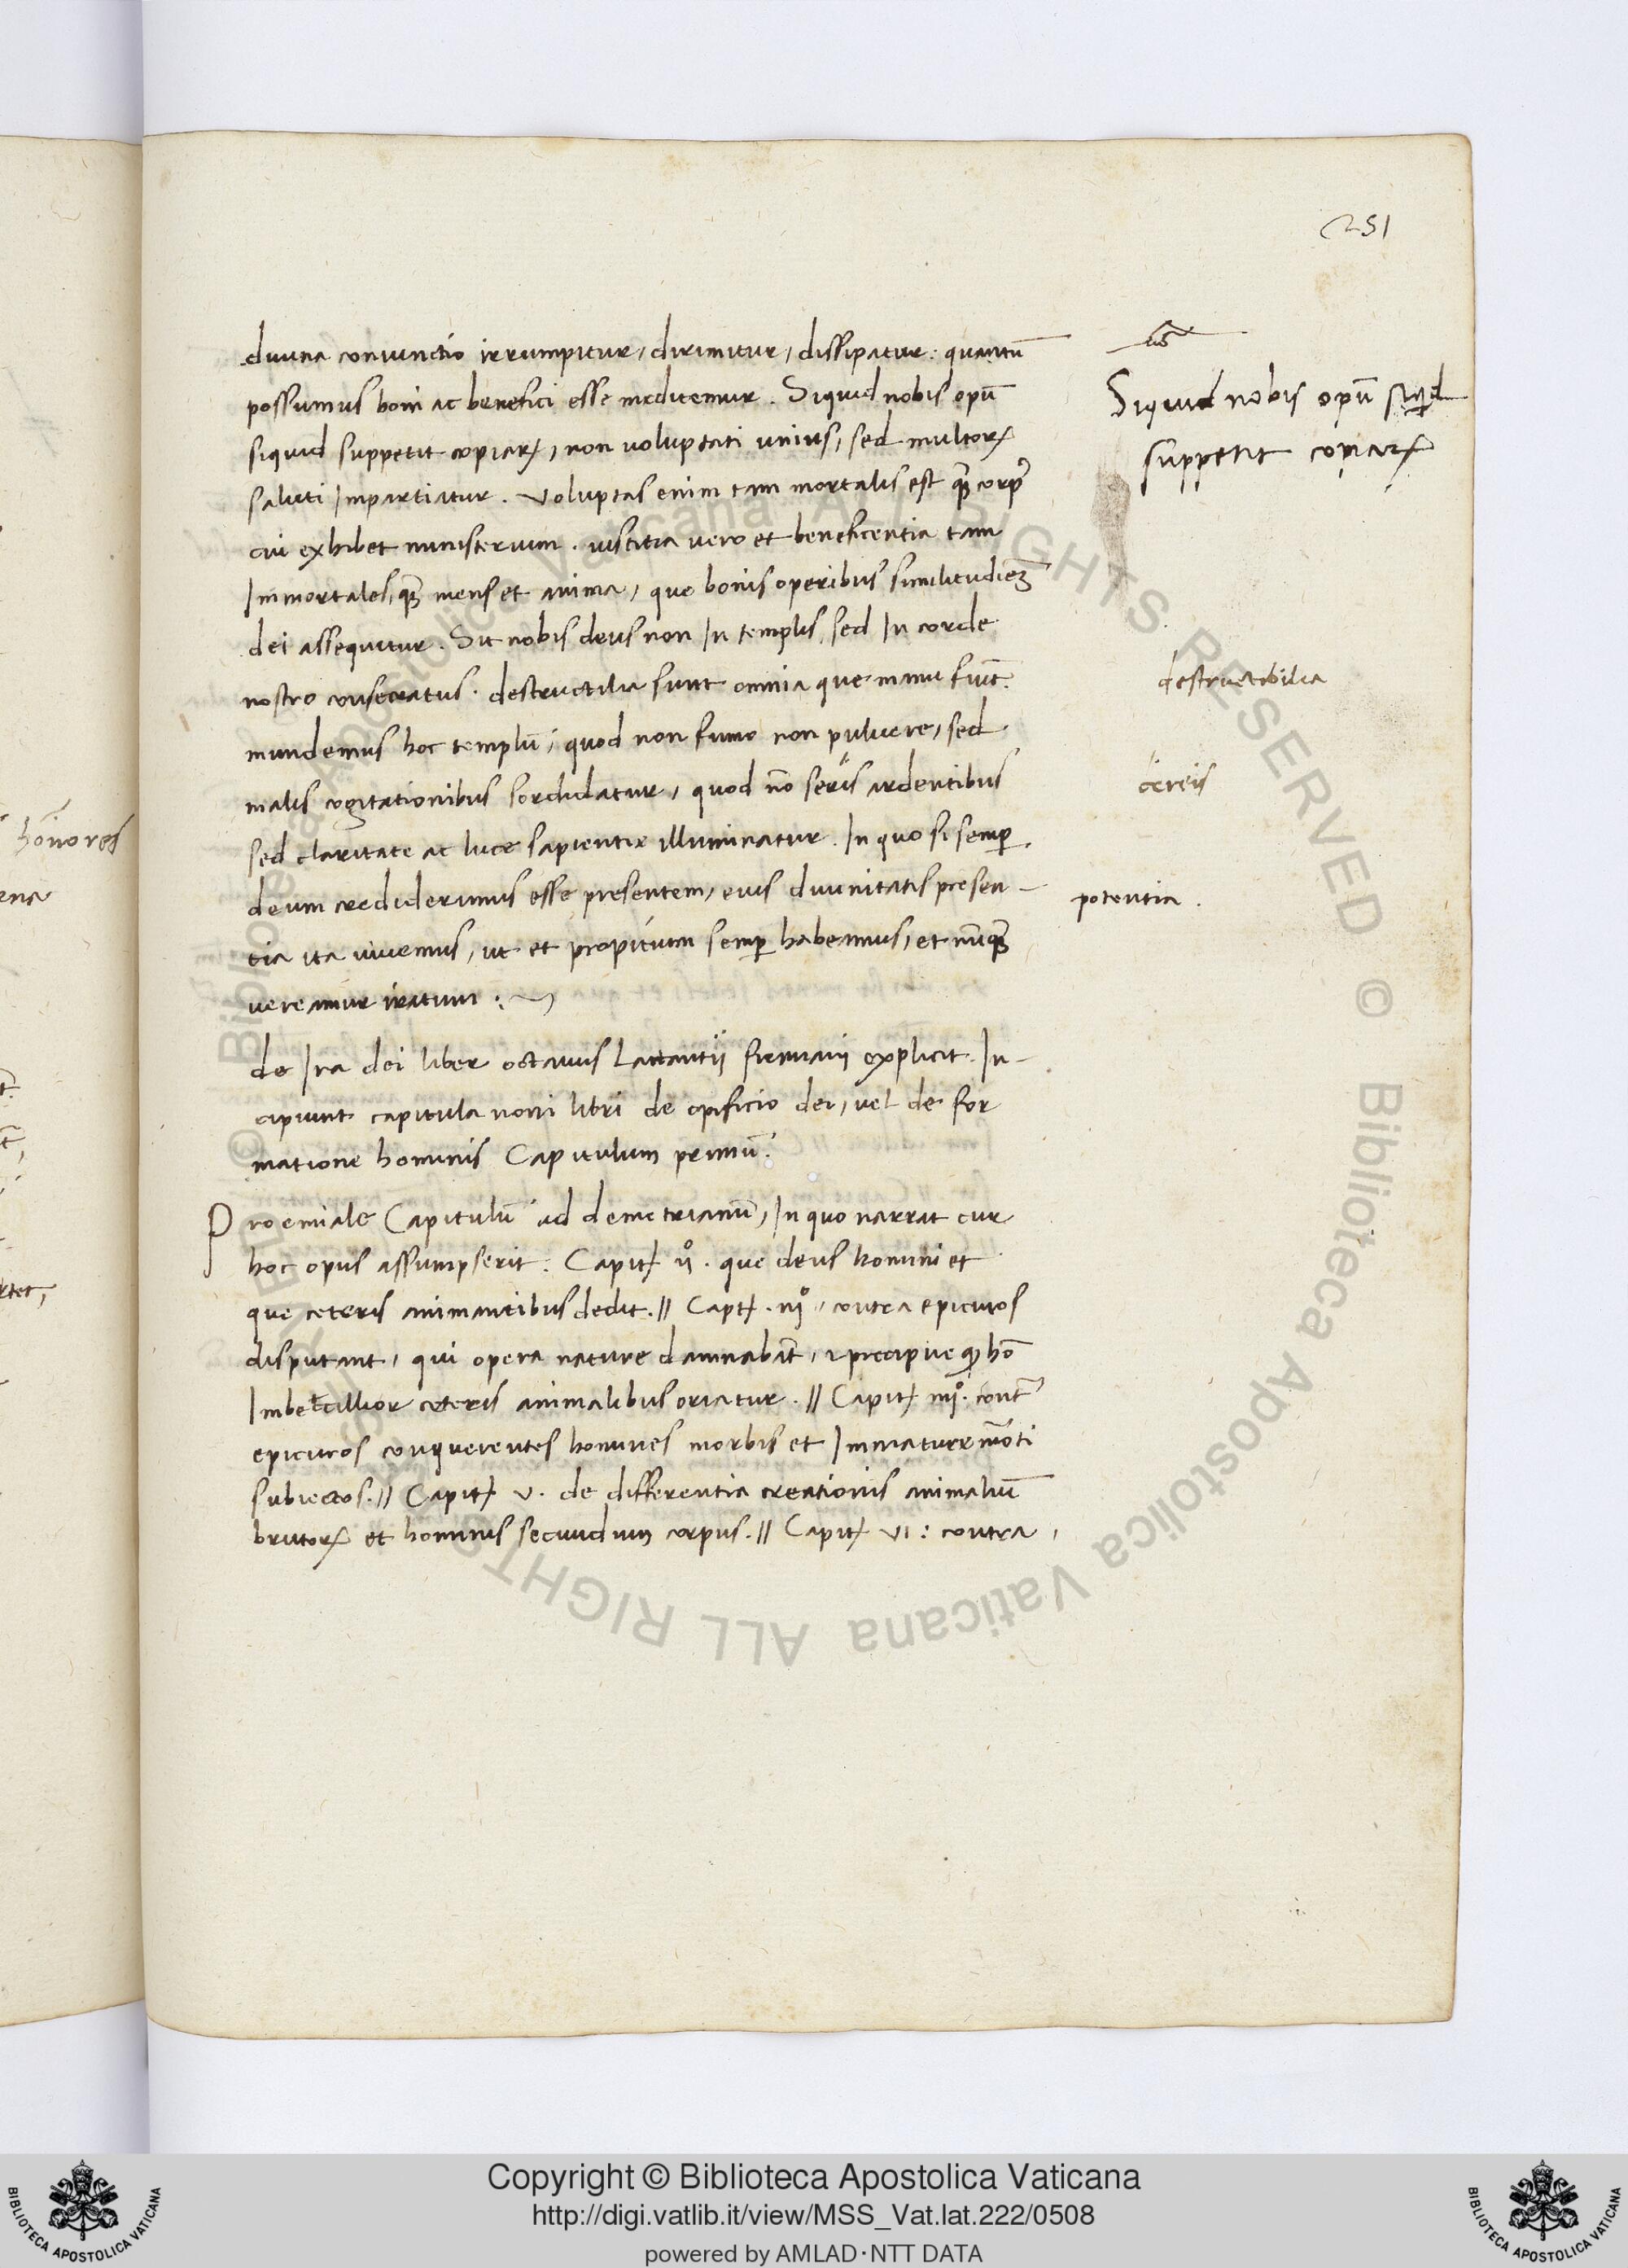 251
diuina coniunctio irrumpitur, dirimitur, dissipatur: quantū
possumus boni ac benefici esse meditemur. Siquid nobis opū
siquid suppetit copiarꝝ, non uoluptati unius, sed multorꝝ
saluti Impartiatur. Voluptas enim tam mortalis est qȝ̄ corpꝰ
cui exhibet ministerium. iustitia uero et beneficentia tam
Immortales, qȝ̄ mens et anima, que bonis operibus similitudiēȝ
dei assequitur. Sit nobis deus non In templis, sed In corde
nostro cōnsecratus. destructilia sunt omnia que manu fiūt.
mundemus hoc templū, quod non fumo non puluere, sed
malis cogitationibus sordidatur, quod nō seris ardentibus
sed claritate ac luce sapientie illuminatur. In quo si semꝑ
deum crediderimus esse presentem, eius diuinitatis presen-
tia ita uiuemus, ut et propitium semꝑ habeamus, et nūqȝ̄
uereamur iratum:
de Ira dei liber octauus Lactantii firmiani explicit. In-
cipiunt capitula noni libri de opificio dei, uel de for
matione hominis Capitulum primū.
Proemiale Capitulū ad demetrianū, In quo narrat cur
hoc opus assumpserit. Capitꝉ ijº. que deus homini et
que ceteris animantibus dedit. // Captꝉ. iijº. contra epicuros
disputant, qui opera nature damnabāt, & precipue qꝙ hō
Imbecillior ceteris animalibus oriatur. // Capitꝉ iiijº. contᵃ
epicuros conquerentes homines morbis et Immature mōti
subiectos. // Capitꝉ v. de differentia creationis animaliū
brutorꝝ et hominis secundum corpus. // Capitꝉ vi: contra
Siquid nobis opū siqd
suppetit copiarꝝ
destructibilia
cereis
potentia.
hōnores
Copyright © Biblioteca Apostolica Vaticana
http://digi.vatlib.it/view/MSS_Vat.lat.222/0508
powered by AMLAD·NTT DATA
BIBLIOTECA APOSTOLICA VATICANA
BIBLIOTECA APOSTOLICA VATICANA
© Biblioteca Apostolica Vaticana ALL RIGHTS RESERVED © Biblioteca Apostolica Vaticana ALL RIGHTS RESERVED